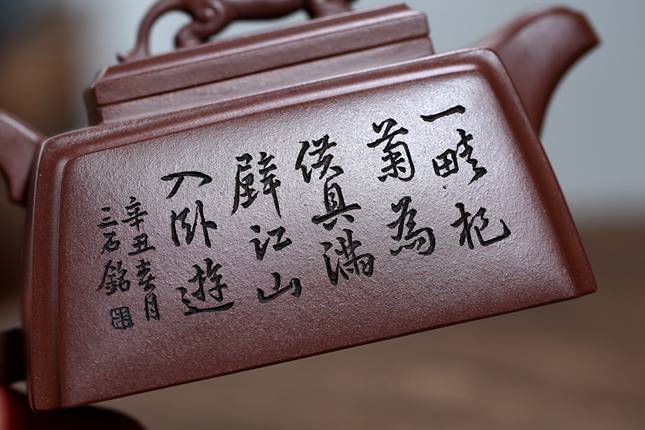 一畦杞
菊為
供具滿
壁江山
入卧遊
辛丑春月
三石銘